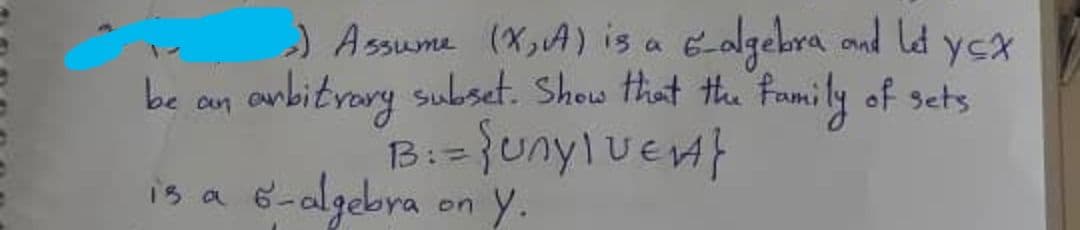 ) Assume (X,A) is a σ-algebra and let y⊆X
be an arbitrary subset. Show that the family of sets
B:={U∩y|U∈A}
is a σ-algebra on y.